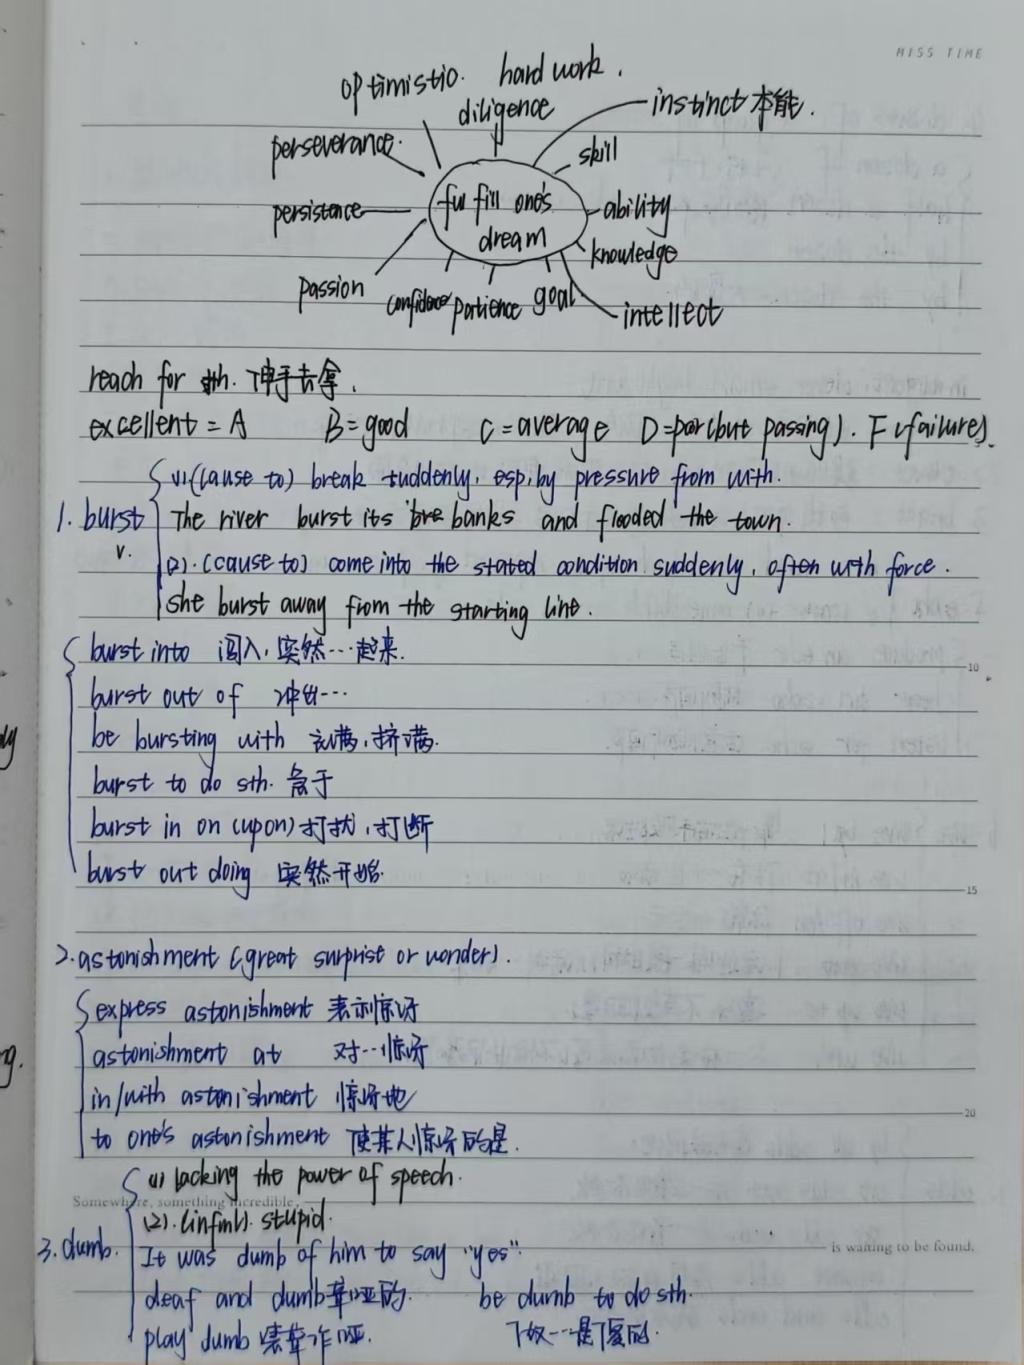 MISS TIME
optimistic. hard work.
diligence
instinct 本能.
perseverance.
skill
persistence
fulfill one's
dream
ability
knowledge
passion
confidence patience goal
intellect
reach for sth. 伸手去拿.
excellent = A B = good C = average D = poor(but passing). F (failure).
(1) (cause to) break suddenly, esp, by pressure from with.
1. burst The river burst its banks and flooded the town.
v. (2). (cause to) come into the stated condition suddenly, often with force.
she burst away from the starting line.
burst into 闯入, 突然…起来.
burst out of 冲出…
be bursting with 充满, 挤满.
burst to do sth. 急于
burst in on (upon) 打扰, 打断
burst out doing 突然开始.
2. astonishment (great surprist or wonder).
express astonishment 表示惊讶
astonishment at 对…惊讶
in/with astonishment 惊讶地
to one's astonishment 使某人惊讶的是.
(1) lacking the power of speech.
Somewhere, something incredible,
(2). (infml). stupid.
3. dumb. It was dumb of him to say "yes".
is waiting to be found.
deaf and dumb 聋哑的. be dumb to do sth.
play dumb 装聋作哑. 做…是傻的.